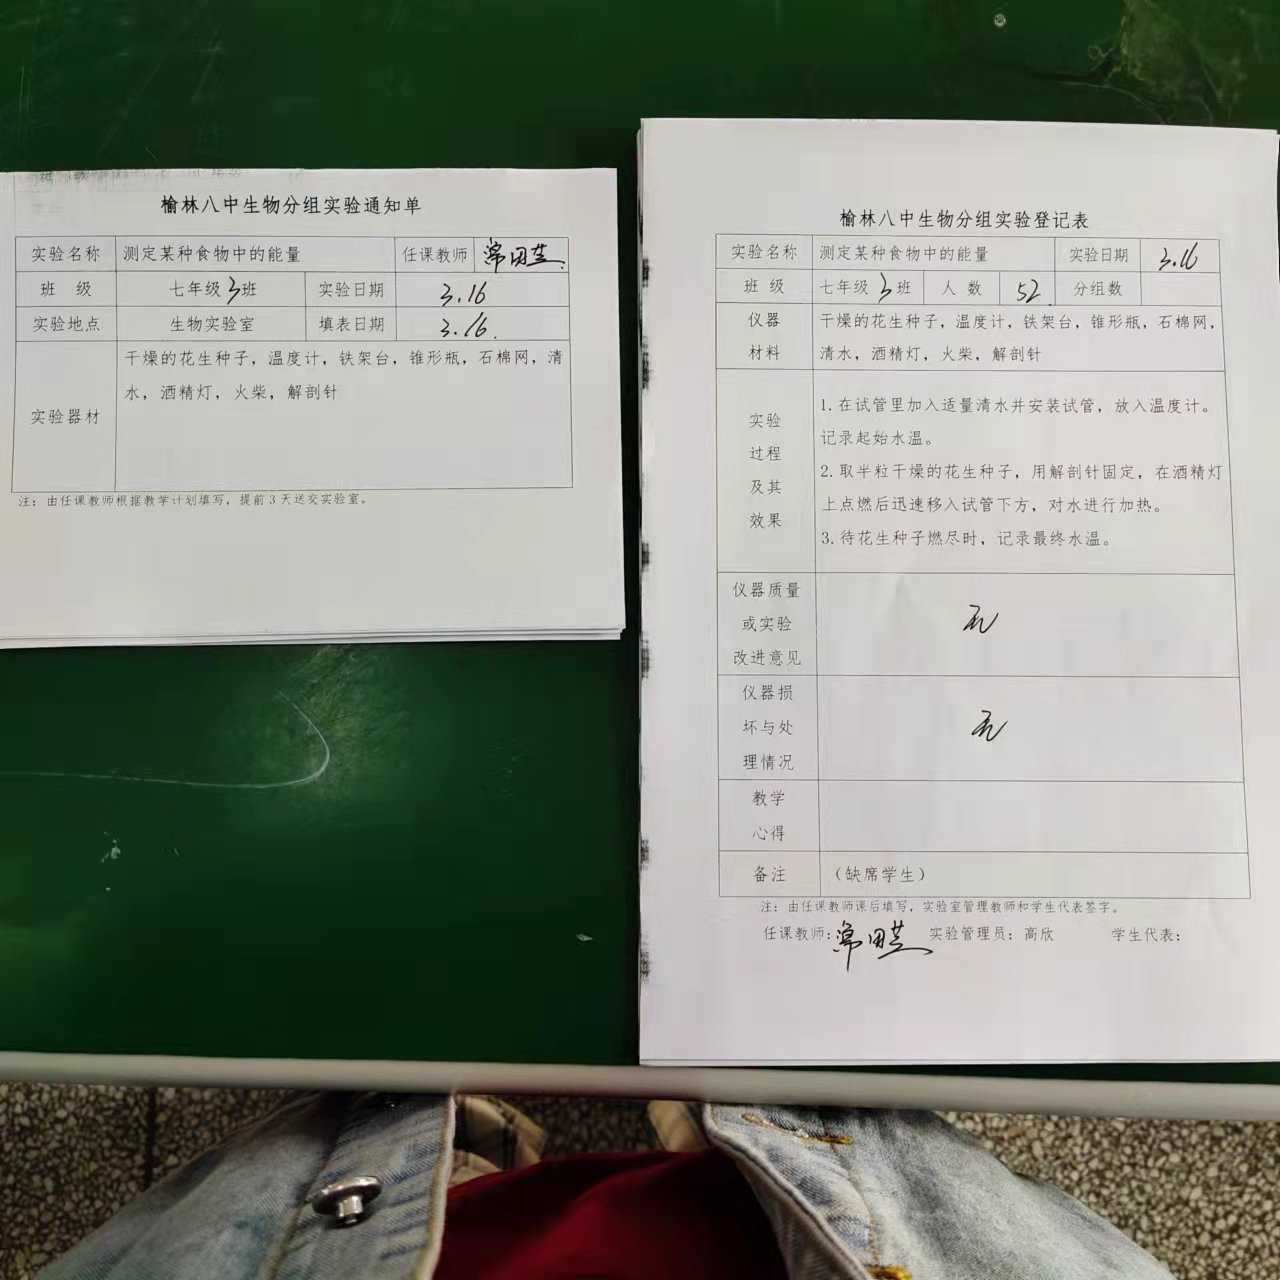 榆林八中生物分组实验通知单
实验名称 测定某种食物中的能量 任课教师
班 级 七年级3班 实验日期 3.16
实验地点 生物实验室 填表日期 3.16.
实验器材
干燥的花生种子，温度计，铁架台，锥形瓶，石棉网，清
水，酒精灯，火柴，解剖针
注：由任课教师根据教学计划填写，提前3天送交实验室。
榆林八中生物分组实验登记表
实验名称 测定某种食物中的能量 实验日期 3.16
班 级 七年级3班 人 数 52 分组数
仪器
材料
干燥的花生种子，温度计，铁架台，锥形瓶，石棉网，
清水，酒精灯，火柴，解剖针
实验
过程
及其
效果
1.在试管里加入适量清水并安装试管，放入温度计。
记录起始水温。
2.取半粒干燥的花生种子，用解剖针固定，在酒精灯
上点燃后迅速移入试管下方，对水进行加热。
3.待花生种子燃尽时，记录最终水温。
仪器质量
或实验
改进意见
无
仪器损
坏与处
理情况
无
教学
心得
备注 （缺席学生）
注：由任课教师课后填写，实验室管理教师和学生代表签字。
任课教师： 实验管理员：高欣 学生代表：